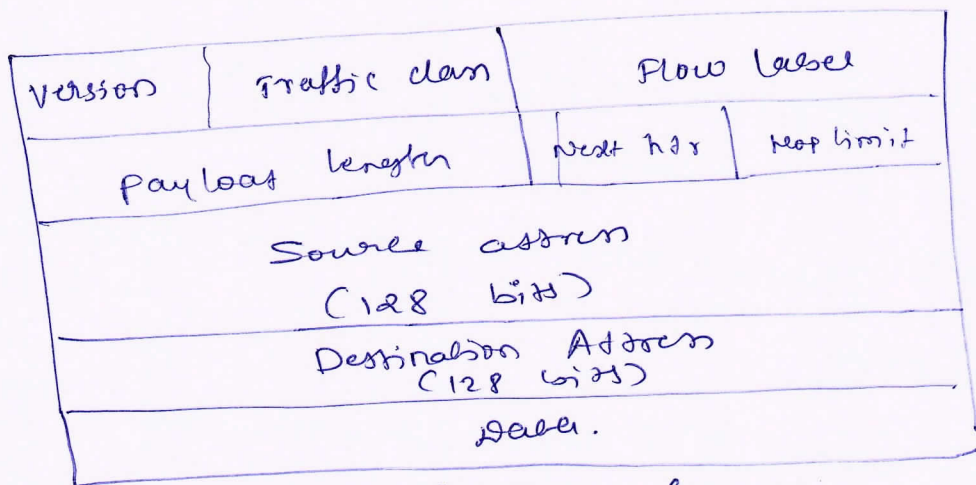 Version Traffic class Flow label
Payload length Next hdr Hop limit
Source address
(128 bits)
Destination Address
(128 bits)
Data.